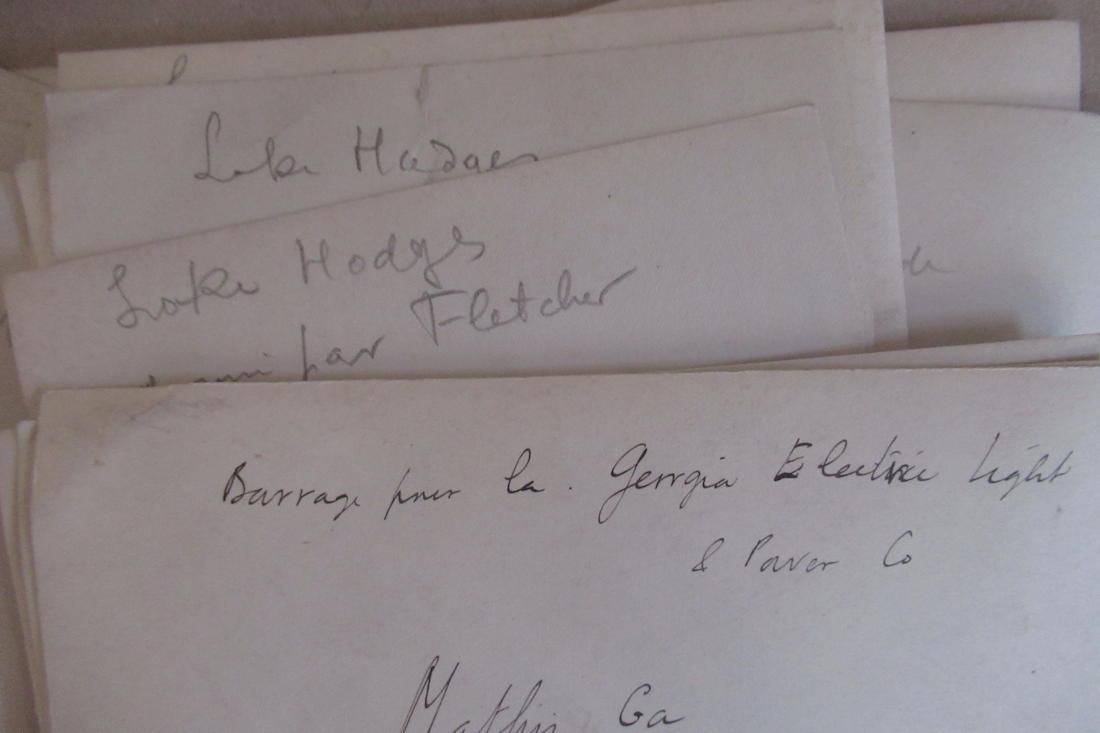 Lake Hodges
Lake Hodges
par Fletcher
Barrage pour la Georgia Electric Light
& Power Co
Mathis Ga